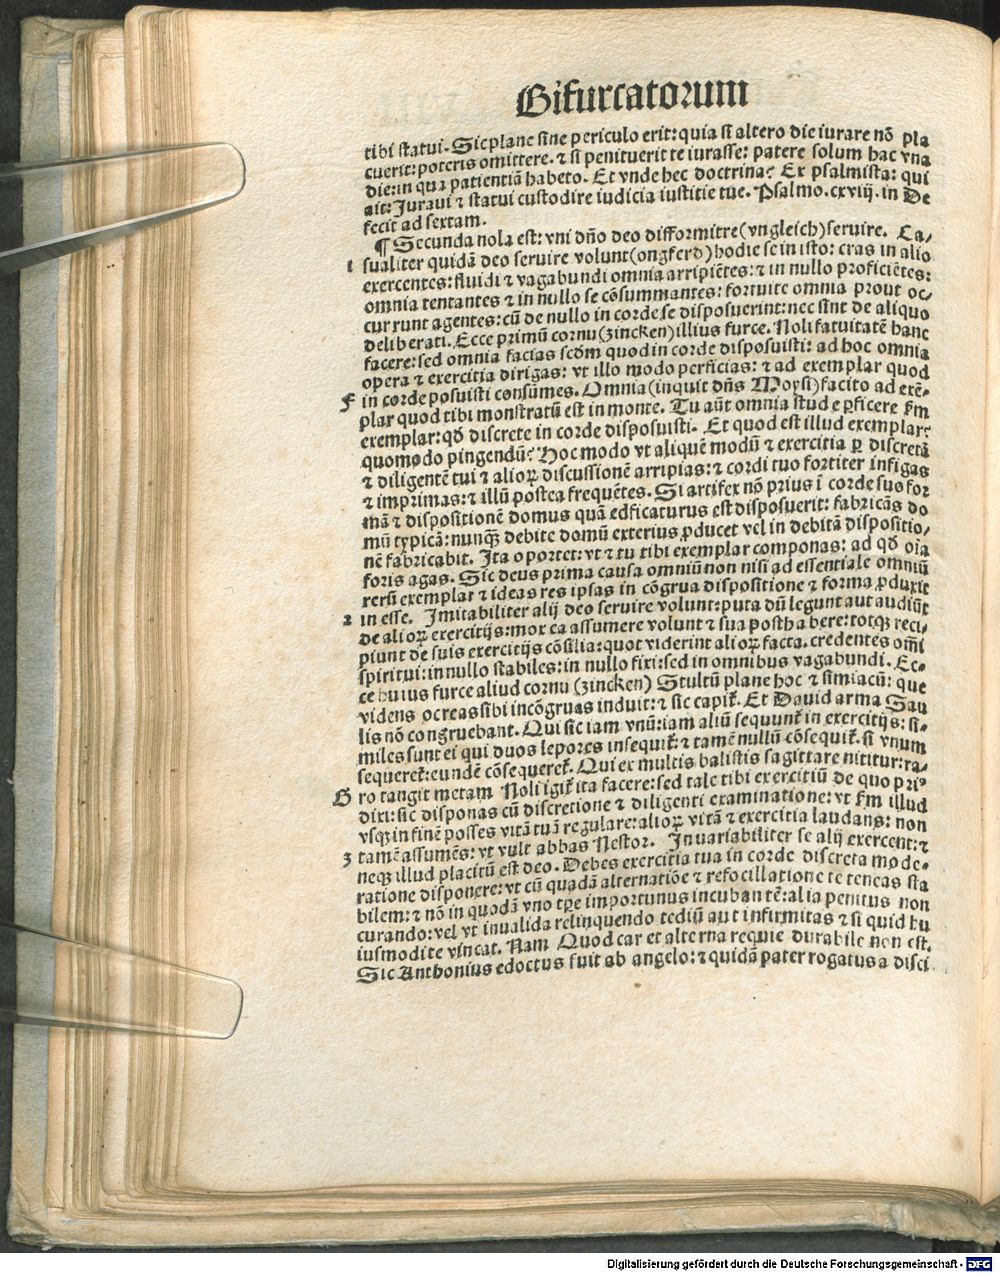 Bifurcatorum
tibi statui. Sic plane sine periculo erit: quia si altero die iurare nō pla
cuerit: poteris omittere. ⁊ si penituerit te iurasse: patere solum hac vna
die: in qua patientiā habeto. Et vnde hec doctrina? Ex psalmista: qui
ait: Juravi ⁊ statui custodire iudicia iustitie tue. Psalmo. cxviij. in De
fecit ad sextam.
¶ Secunda nola est: vni dño deo difformitre (vngleich) seruire. Ca⸗
1 sualiter quidā deo seruire volunt (ongferd) hodie se in isto: cras in alio
exercentes: fluidi ⁊ vagabundi omnia arripiētes: ⁊ in nullo proficiētes:
omnia tentantes ⁊ in nullo se cōsummantes: fortuite omnia prout oc⸗
currunt agentes: cū de nullo in corde se disposuerint: nec sint de aliquo
deliberati. Ecce primū cornu (zincken) illius furce. Noli fatuitatē hanc
facere: sed omnia facias scdm quod in corde disposuisti: ad hoc omnia
opera ⁊ exercitia dirigas: vt illo modo perficias: ⁊ ad exemplar quod
F in corde posuisti consūmes. Omnia (inquit dñs Moysi) facito ad exē⸗
plar quod tibi monstratū est in monte. Tu aūt omnia stude ꝑficere fm
exemplar: qđ discrete in corde disposuisti. Et quod est illud exemplar?
quomodo pingendū? Hoc modo vt aliquē modū ⁊ exercitia ꝑ discretā
⁊ diligentē tui ⁊ alioꝝ discussionē arripias: ⁊ cordi tuo fortiter infigas
⁊ imprimas: ⁊ illū postea frequētes. Si artifex nō prius ī corde suo for
mā ⁊ dispositionē domus quā edficaturus est disposuerit: fabricās do
mū typicā: nunqꝫ debite domū exterius ꝓducet vel in debitā dispositio⸗
nē fabricabit. Ita oportet: vt ⁊ tu tibi exemplar componas: ad qđ oīa
foris agas. Sic deus prima causa omniū non nisi ad essentiale omniū
rerū exemplar ⁊ ideas res ipsas in cōgrua dispositione ⁊ forma ꝓduxit
2 in esse. Imitabiliter alij deo seruire volunt: puta dū legunt aut audiūt
de alioꝝ exercitijs: mox ea assumere volunt ⁊ sua posthabere: totqꝫ reci⸗
piunt de suis exercitijs cōsilia: quot viderint alioꝝ facta. credentes omī
spiritui: in nullo stabiles: in nullo fixi: sed in omnibus vagabundi. Ec⸗
ce huius furce aliud cornu (zincken) Stultū plane hoc ⁊ simiacū: que
videns ocreas sibi incōgruas induit: ⁊ sic capit̄. Et David arma Sau
lis nō congruebant. Qui sic iam vnū: iam aliū sequunt̄ in exercitijs: si⸗
miles sunt ei qui duos lepores insequit̄: ⁊ tamē nullū cōsequit̄. si vnum
sequeret̄: eundē cōsequeret̄. Qui ex multis balistis sagittare nititur: ra⸗
G ro tangit metam Noli igit̄ ita facere: sed tale tibi exercitiū de quo priꝰ
dixi: sic disponas cū discretione ⁊ diligenti examinatione: vt fm illud
vsqꝫ in finē posses vitā tuā regulare: alioꝝ vitā ⁊ exercitia laudans: non
3 tamē assumēs: vt vult abbas Nestor. Invariabiliter se alij exercent: ⁊
neqꝫ illud placitū est deo. Debes exercitia tua in corde discreta mode⸗
ratione disponere: vt cū quadā alternatiōe ⁊ refocillatione te teneas sta
bilem: ⁊ nō in quodā vno tꝑe importunus incubantē: alia penitus non
curando: vel vt invalida relinquendo tediū aut infirmitas ⁊ si quid hu
iusmodi te vincat. Nam Quod car et alterna requie durabile non est.
Sic Anthonius edoctus fuit ab angelo: ⁊ quidā pater rogatus a disci
Digitalisierung gefördert durch die Deutsche Forschungsgemeinschaft - DFG